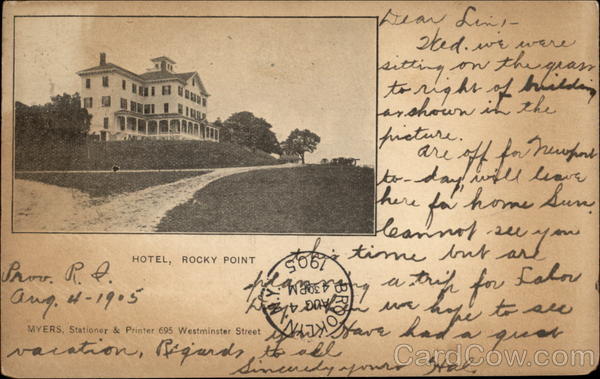 Dear Lin,-
Wed. we were
sitting on the grass
to right of building
as shown in the
picture.
Are off for Newport
to-day, will leave
here for home Sun.
Cannot see you
this time but are
planning a trip for Labor
Day when we hope to see
you. Have had a great
vacation, Regards to all
Sincerely yours Hal.
HOTEL, ROCKY POINT
Prov. R. I.
Aug. 4-1905
MYERS, Stationer & Printer 695 Westminster Street
BROOKLYN, N.Y.
AUG 4
4-30PM
1905
CardCow.com